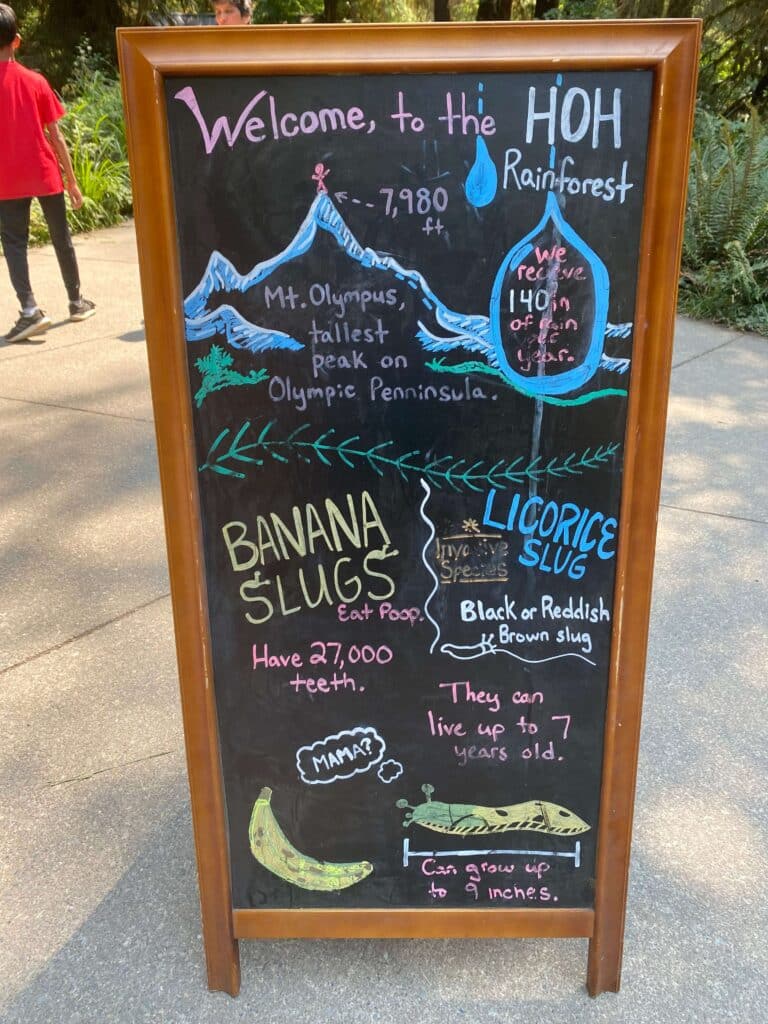 Welcome, to the HOH
Rainforest
7,980
ft.
Mt. Olympus,
tallest
peak on
Olympic Penninsula.
We
recieve
140 in
of rain
per
year.
BANANA
SLUGS
Eat Poop.
Have 27,000
teeth.
Invasive
Species
LICORICE
SLUG
Black or Reddish
Brown slug
They can
live up to 7
years old.
MAMA?
Can grow up
to 9 inches.